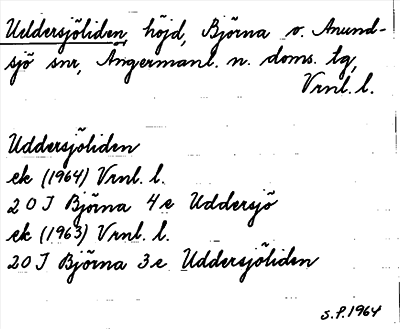 Uddersjöliden, höjd, Björna o. Anund-
sjö snr, Ångermanl. n. doms. tg,
Vrnl. l.
Uddersjöliden
ek (1964) Vrnl. l.
20 I Björna 4e Uddersjö
ek (1963) Vrnl. l.
20 I Björna 3e Uddersjöliden
S.P. 1964